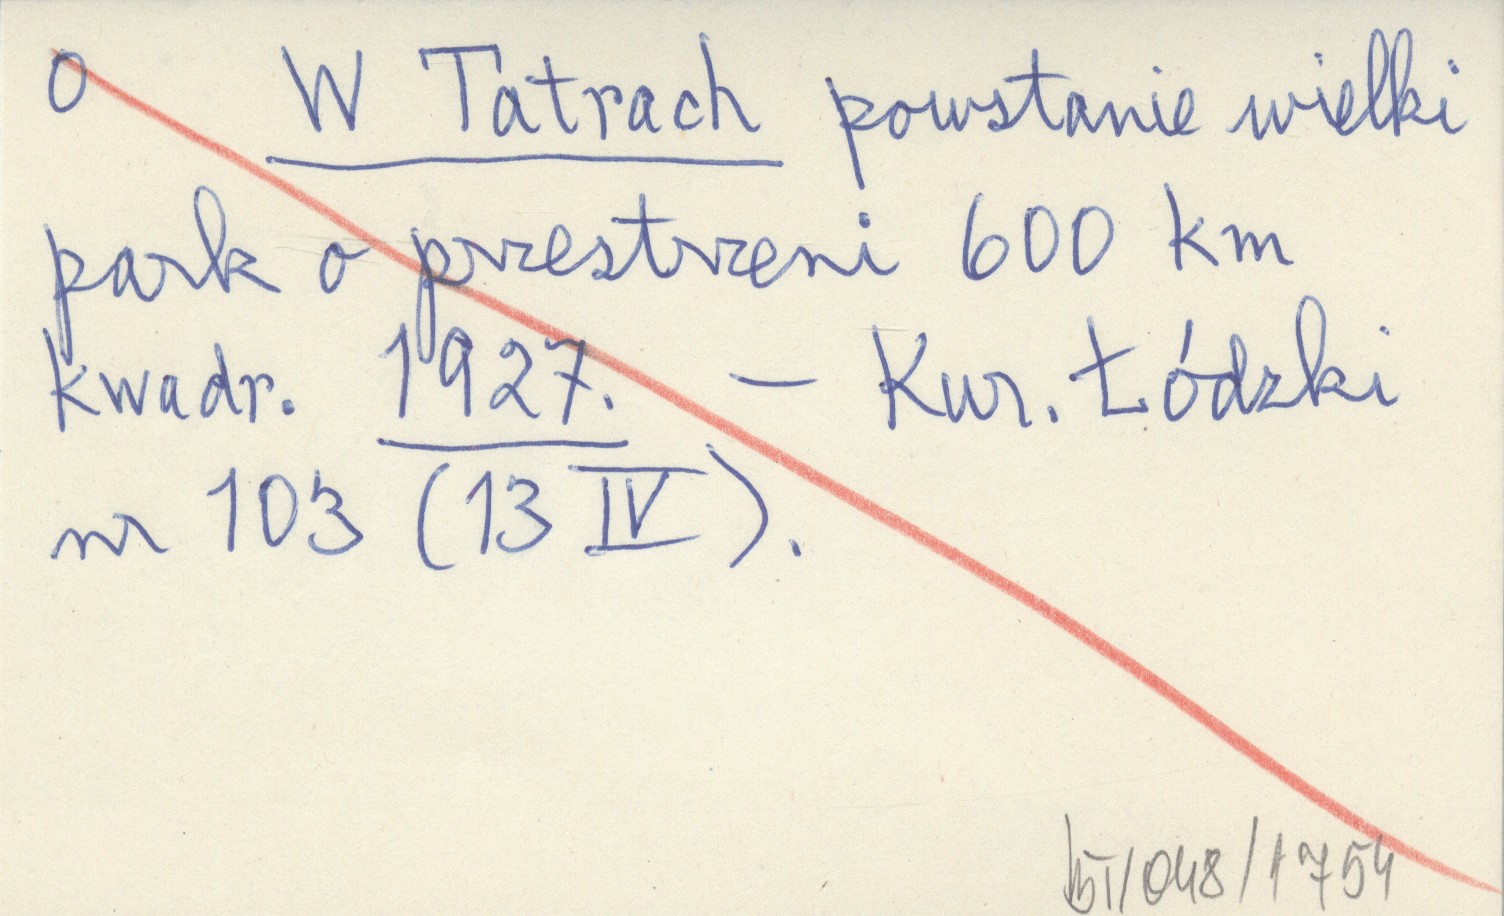 O W Tatrach powstanie wielki
park o przestrzeni 600 km
kwadr. 1927. — Kur. Łódzki
nr 103 (13 IV).
/048/1754